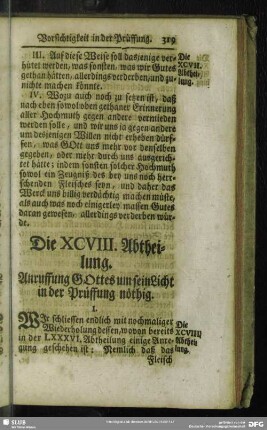 Vorsichtigkeit in der Prüffung. 319
III. Auf diese Weise soll dasjenige ver-
hütet werden, was sonsten, was wir Gutes
gethan hätten, allerdings verderben, und zu-
nichte machen könnte.
Die
XCVII.
Abthei-
lung.
IV. Wozu auch noch zu setzen ist, daß
nach eben sowol noben gethaner Erinnerung
aller Hochmuth gegen andere vermieden
werden solle, und wir uns ja gegen andere
um desjenigen Willen nicht erheben dürf-
fen, was GOtt uns mehr vor denselben
gegeben, oder mehr durch uns ausgerich-
tet hätte; indem sonsten solcher Hochmuth
sowol ein Zeugniß des bey uns noch herr-
schenden Fleisches seyn, und daher das
Werck uns billig verdächtig machen müste,
als auch was noch einigerley massen Gutes
daran gewesen, allerdings verderben wür-
de.
Die XCVIII. Abthei-
lung.
Anruffung GOttes um sein Licht
in der Prüffung nöthig.
I.
WIr schliessen endlich mit nochmaliger
Wiederholung dessen, wovon bereits
in der LXXXVI. Abtheilung einige Anre-
gung geschehen ist: Nemlich daß das
Die
XCVIII.
Abthei
lung.
Fleisch
SLUB